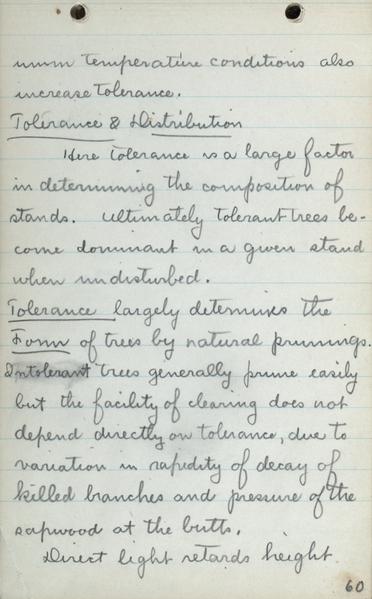 mum temperature conditions also
increase tolerance.
Tolerance & Distribution
Here tolerance is a large factor
in determining the composition of
stands. Ultimately tolerant trees be-
come dominant in a given stand
when undisturbed.
Tolerance largely determines the
Form of trees by natural prunings.
Intolerant trees generally prune easily
but the facility of clearing does not
depend directly on tolerance, due to
variation in rapidity of decay of
killed branches and pressure of the
sapwood at the butts.
Direct light retards height
60